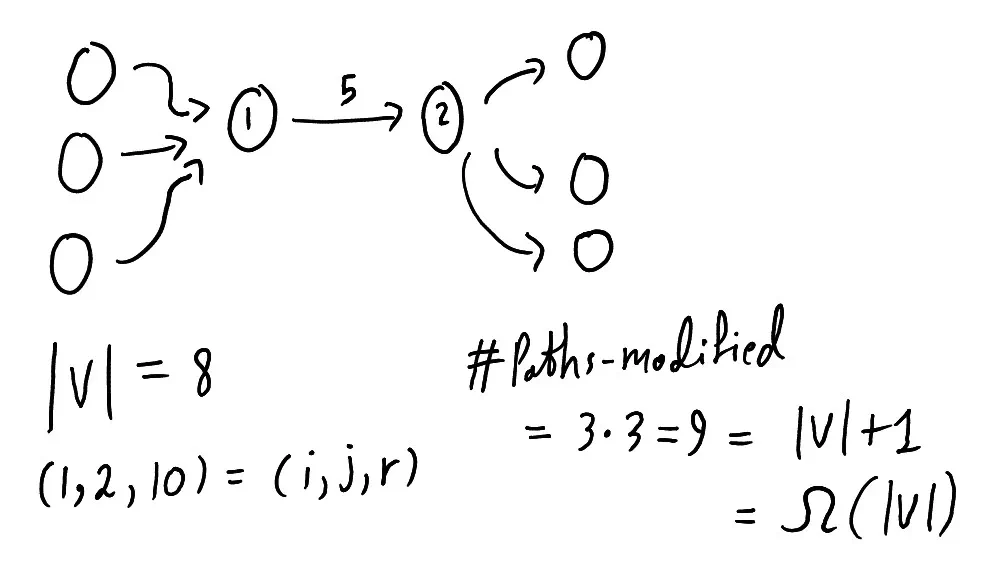 5
1
2
|V| = 8
(1,2,10) = (i,j,r)
#Paths-modified
= 3·3=9 = |V|+1
= Ω(|V|)